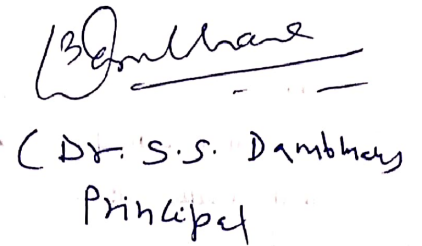 (Dr. S.S. Dambhare
Principal